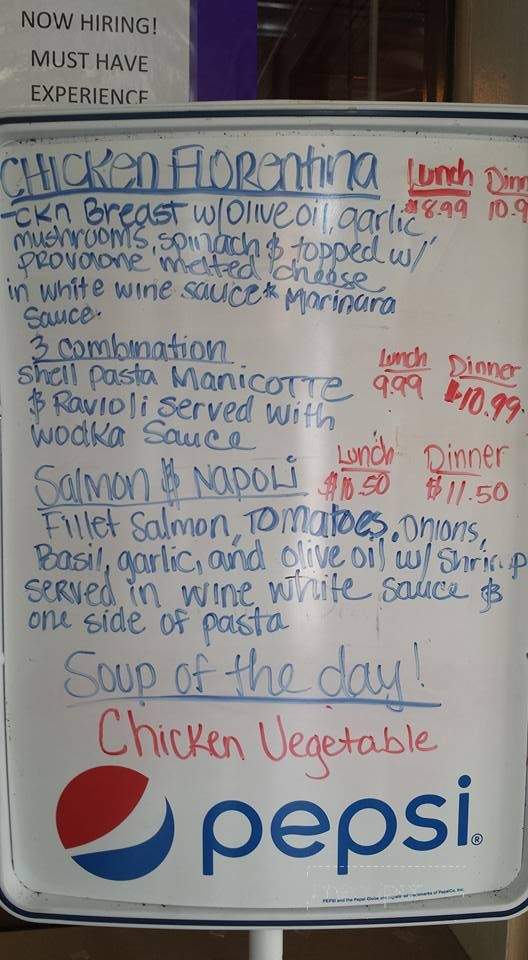 NOW HIRING!
MUST HAVE
EXPERIENCE
CHICKEN FLORENTINA Lunch Dinn
-CKN Breast w/Olive oil, garlic $8.99 10.9
mushrooms, spinach & topped w/
PROVOLONE melted cheese
in white wine sauce * Marinara
Sauce.
3 Combination Lunch Dinner
Shell Pasta MANICOTTE 9.99 $10.99
& Ravioli served with
WODKA Sauce
Salmon & NAPOLI Lunch Dinner
$10.50 $11.50
Fillet Salmon, TOMATOES, Onions,
Basil, garlic, and olive oil w/ Shrimp
SERVED in wine white sauce &
one side of pasta
Soup of the day!
Chicken Vegetable
pepsi®
PEPSI and the Pepsi Globe are registered trademarks of PepsiCo, Inc.